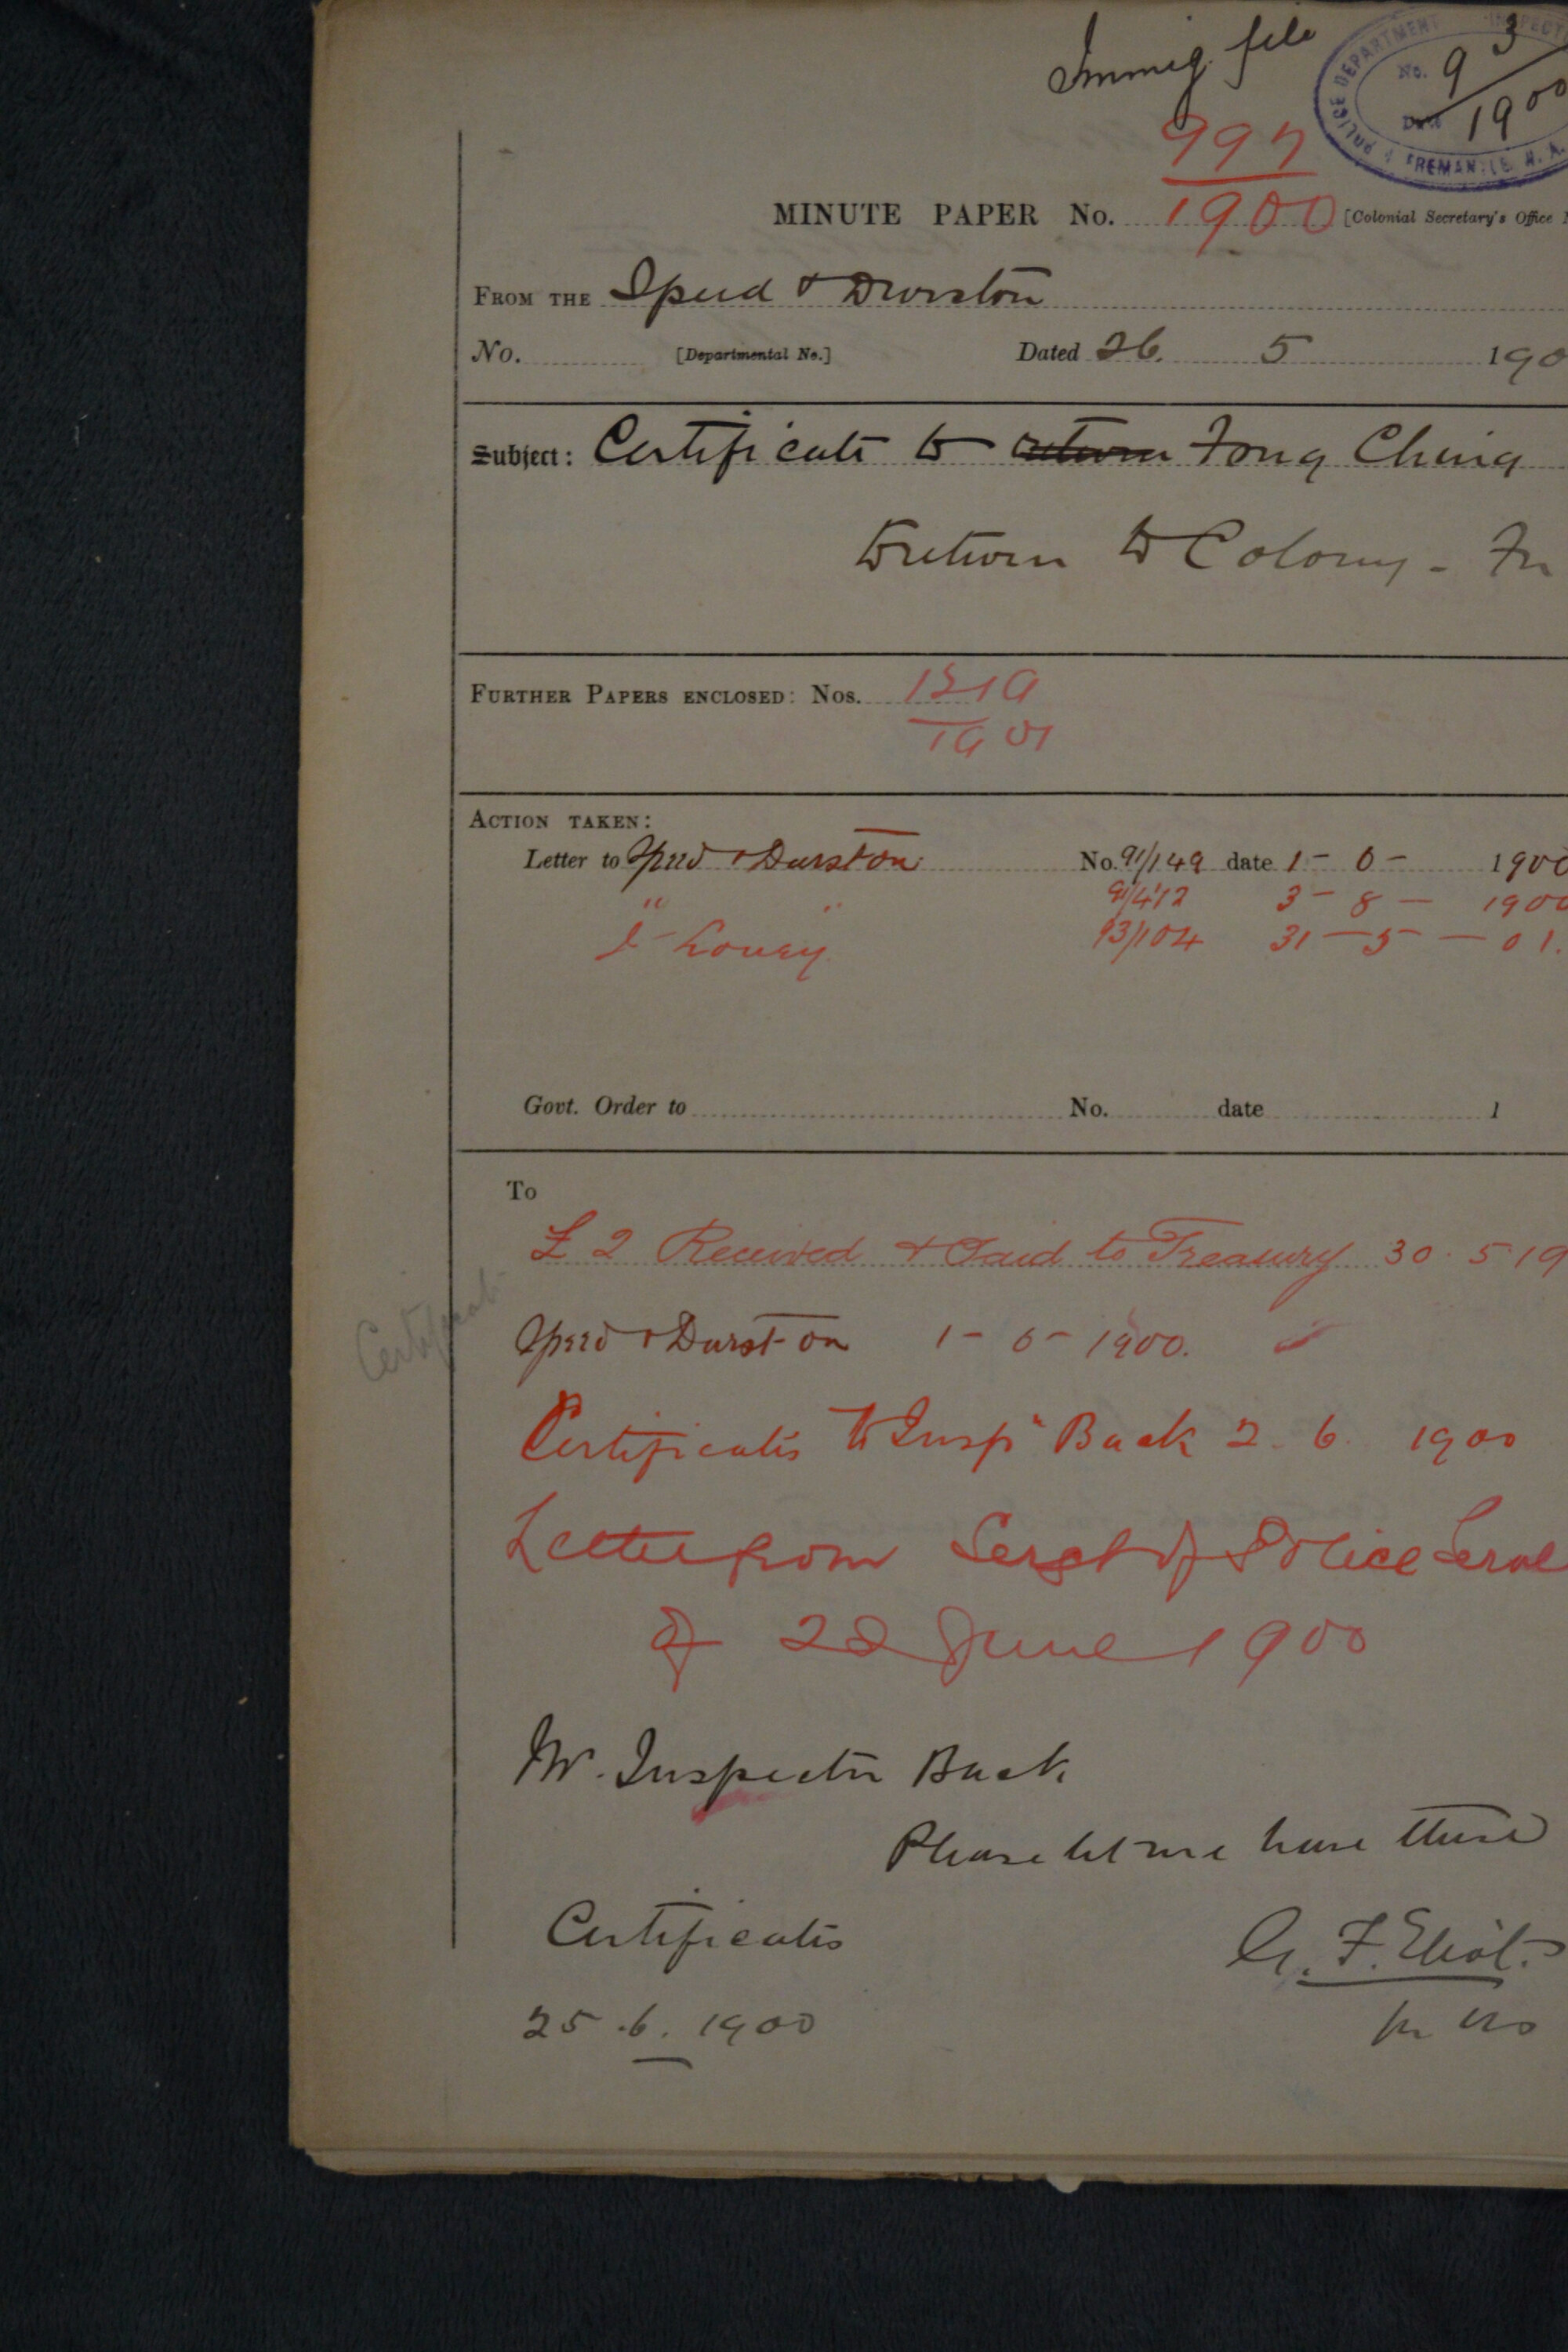 Immig. file
POLICE DEPARTMENT INSPECT
No. 93
Date 1900
FREMANTLE W. A.
997
1900
MINUTE PAPER No. [Colonial Secretary's Office
FROM THE Speed & Durston
No. [Departmental No.] Dated 26. 5 190
Subject: Certificate to return Fong Ching
to return to Colony -
FURTHER PAPERS ENCLOSED: Nos. 1219
1901
ACTION TAKEN:
Letter to Speed & Durston No. 91/149 date 1- 6- 1900
" " 91/412 3- 8 - 1900
93/104 31 - 5 - 01.
Govt. Order to No. date 1
To
£2 Received & Paid to Treasury 30. 5. 19
Certificate
Speed & Durston 1- 6- 1900.
Certificates to Inspr Back 2. 6. 1900
Letter from Sergt of Police
of 22 June 1900
Mr. Inspector Back
Please let me have these
Certificates
G. F. Eliot.
25. 6. 1900